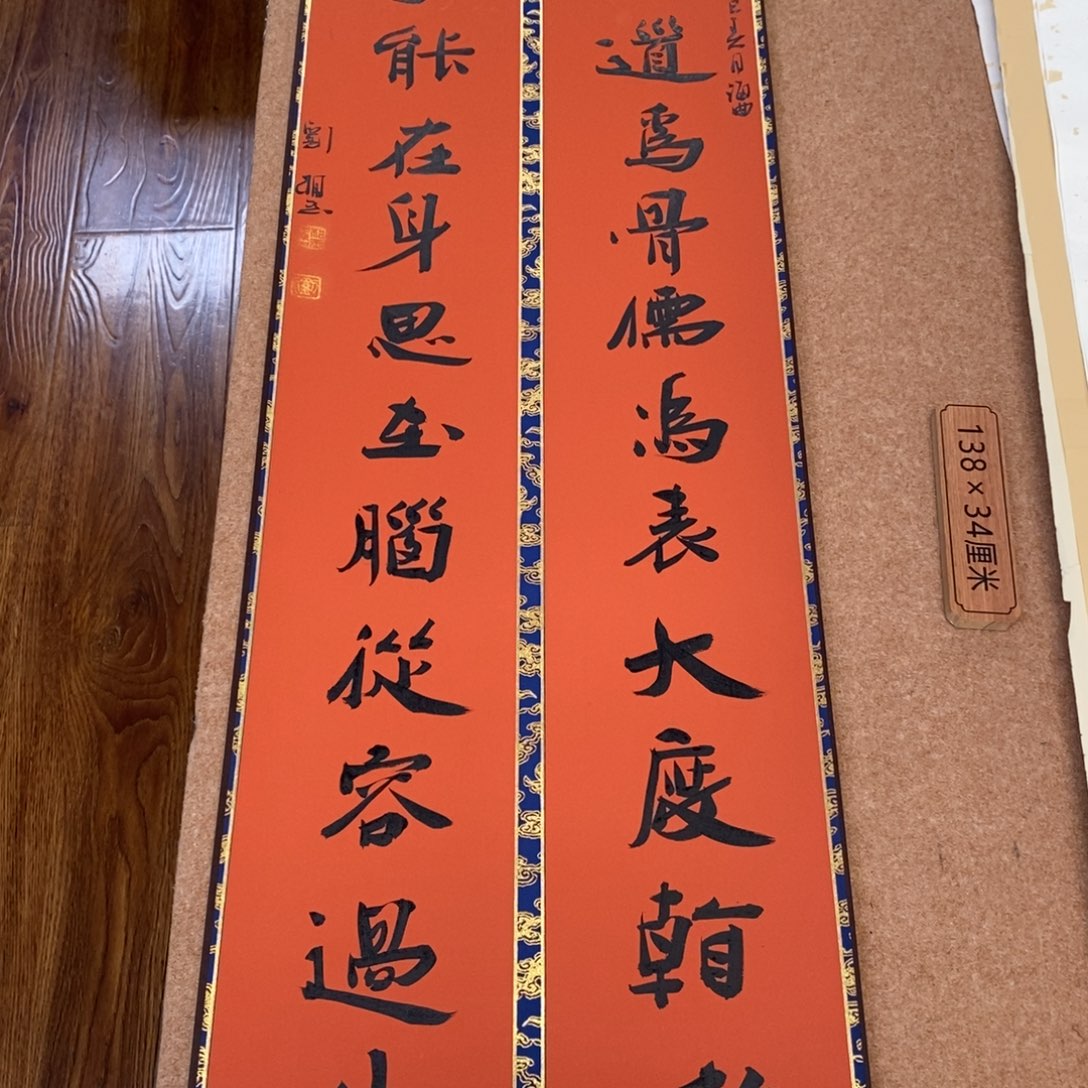 春月
道為骨儒為表大度看
能在身思在腦從容過
劉
138×34厘米